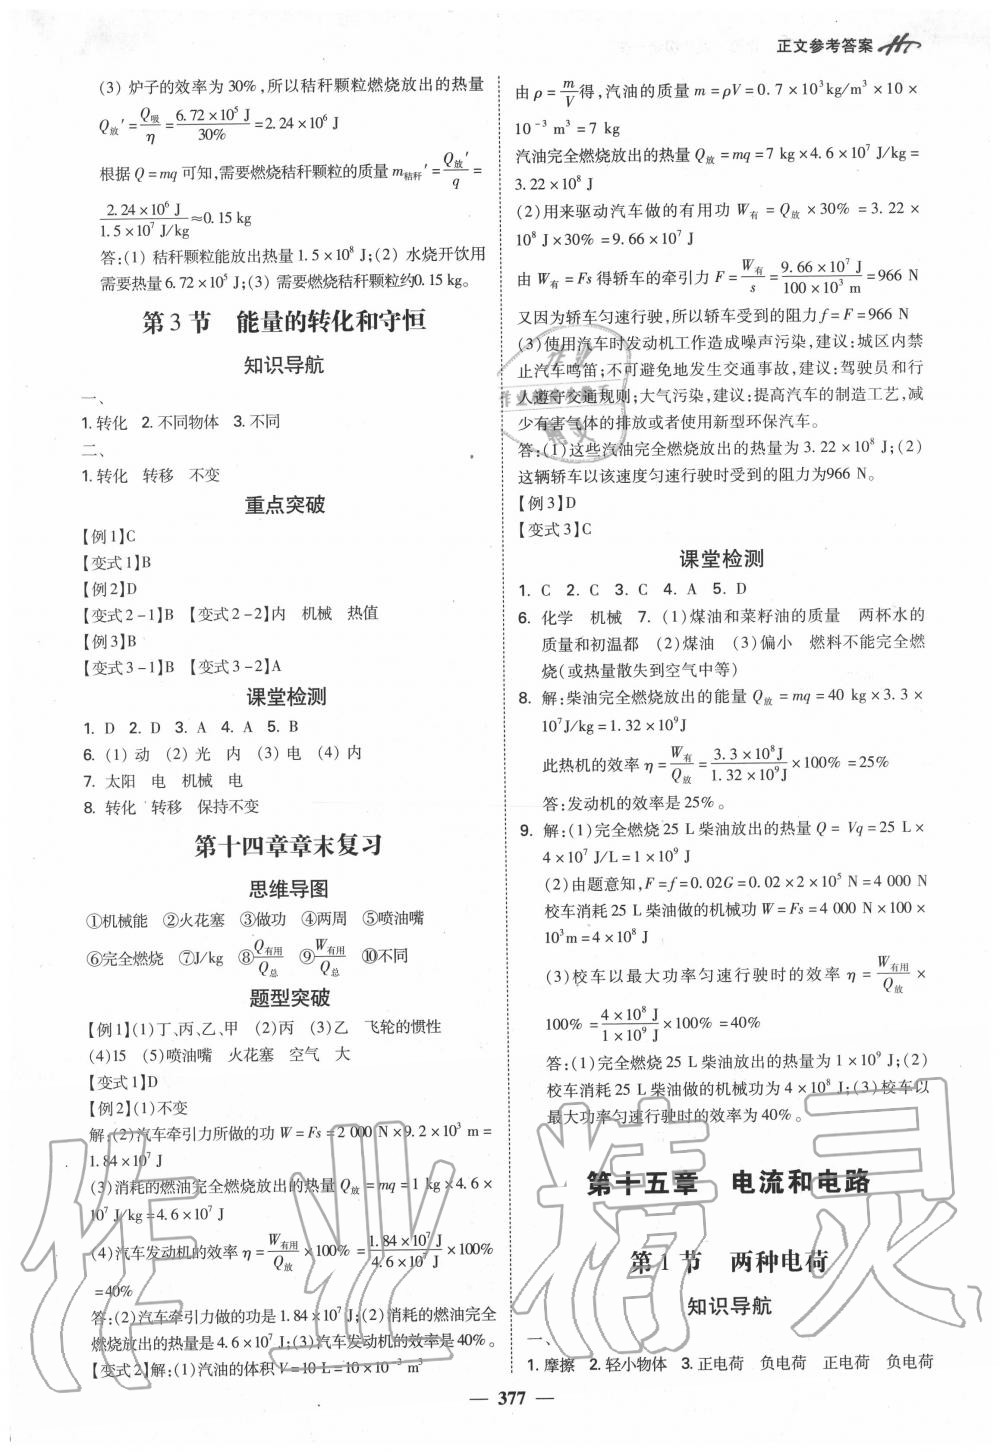 正文参考答案
(3) 炉子的效率为 30%,所以秸秆颗粒燃烧放出的热量
Q放′=Q吸/η=6.72×10⁵ J/30%=2.24×10⁶ J
根据 Q=mq 可知,需要燃烧秸秆颗粒的质量 m秸秆′=Q放′/q=
2.24×10⁶ J/1.5×10⁷ J/kg≈0.15 kg
答:(1) 秸秆颗粒能放出热量 1.5×10⁸ J;(2) 水烧开饮用
需要热量6.72×10⁵ J;(3) 需要燃烧秸秆颗粒约0.15 kg。
第 3 节 能量的转化和守恒
知识导航
一、
1. 转化 2. 不同物体 3. 不同
二、
1. 转化 转移 不变
重点突破
【例 1】C
【变式 1】B
【例 2】D
【变式 2-1】B 【变式 2-2】内 机械 热值
【例 3】B
【变式 3-1】B 【变式 3-2】A
课堂检测
1. D 2. D 3. A 4. A 5. B
6. (1) 动 (2) 光 内 (3) 电 (4) 内
7. 太阳 电 机械 电
8. 转化 转移 保持不变
第十四章章末复习
思维导图
①机械能 ②火花塞 ③做功 ④两周 ⑤喷油嘴
⑥完全燃烧 ⑦J/kg ⑧Q有用/Q总 ⑨W有用/Q总 ⑩不同
题型突破
【例 1】(1)丁、丙、乙、甲 (2)丙 (3)乙 飞轮的惯性
(4)15 (5)喷油嘴 火花塞 空气 大
【变式 1】D
【例 2】(1)不变
解:(2)汽车牵引力所做的功 W=Fs=2 000 N×9.2×10³ m=
1.84×10⁷ J
(3)消耗的燃油完全燃烧放出的热量 Q放=mq=1 kg×4.6×
10⁷ J/kg=4.6×10⁷ J
(4)汽车发动机的效率 η=W有用/Q放×100%=1.84×10⁷ J/4.6×10⁷ J×100%
=40%
答:(2)汽车牵引力做的功是1.84×10⁷ J;(2)消耗的燃油完全
燃烧放出的热量是4.6×10⁷ J;(3)汽车发动机的效率是40%。
【变式 2】解:(1)汽油的体积 V=10 L=10×10⁻³ m³
由 ρ=m/V得,汽油的质量 m=ρV=0.7×10³kg/m³×10×
10⁻³ m³=7 kg
汽油完全燃烧放出的热量 Q放=mq=7 kg×4.6×10⁷ J/kg=
3.22×10⁸ J
(2)用来驱动汽车做的有用功 W有=Q放×30%=3.22×
10⁸ J×30%=9.66×10⁷ J
由 W有=Fs 得轿车的牵引力 F=W有/s=9.66×10⁷ J/100×10³ m=966 N
又因为轿车匀速行驶,所以轿车受到的阻力 f=F=966 N
(3)使用汽车时发动机工作造成噪声污染,建议:城区内禁
止汽车鸣笛;不可避免地发生交通事故,建议:驾驶员和行
人遵守交通规则;大气污染,建议:提高汽车的制造工艺,减
少有害气体的排放或者使用新型环保汽车。
答:(1)这些汽油完全燃烧放出的热量为 3.22×10⁸ J;(2)
这辆轿车以该速度匀速行驶时受到的阻力为966 N。
【例 3】D
【变式 3】C
课堂检测
1. C 2. C 3. C 4. A 5. D
6. 化学 机械 7. (1)煤油和菜籽油的质量 两杯水的
质量和初温都 (2)煤油 (3)偏小 燃料不能完全燃
烧(或热量散失到空气中等)
8. 解:柴油完全燃烧放出的能量 Q放=mq=40 kg×3.3×
10⁷J/kg=1.32×10⁹J
此热机的效率 η=W有/Q放=3.3×10⁸J/1.32×10⁹J×100%=25%
答:发动机的效率是25%。
9. 解:(1)完全燃烧 25 L 柴油放出的热量 Q=Vq=25 L×
4×10⁷ J/L=1×10⁹ J
(2)由题意知,F=f=0.02G=0.02×2×10⁵ N=4 000 N
校车消耗 25 L柴油做的机械功 W=Fs=4 000 N×100×
10³m=4×10⁸ J
(3)校车以最大功率匀速行驶时的效率 η=W有用/Q放×
100%=4×10⁸ J/1×10⁹ J×100%=40%
答:(1)完全燃烧 25 L 柴油放出的热量为 1×10⁹ J;(2)
校车消耗 25 L 柴油做的机械功为 4×10⁸ J;(3)校车以
最大功率匀速行驶时的效率为 40%。
第十五章 电流和电路
第 1 节 两种电荷
知识导航
一、
1. 摩擦 2. 轻小物体 3. 正电荷 负电荷 正电荷 负电荷
— 377 —
作业精灵